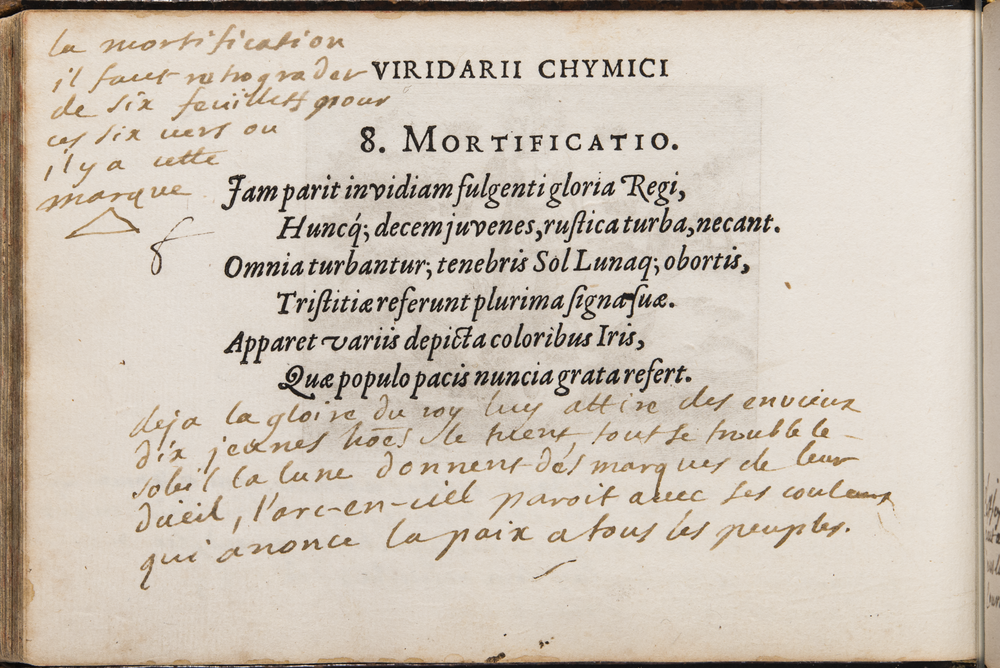 la mortification
il faut retrograder
de six feuillets pour
ces six vers ou
il y a cette
marque
8
VIRIDARII CHYMICI
8. MORTIFICATIO.
Jam parit invidiam fulgenti gloria Regi,
Huncq́; decem juvenes, rustica turba, necant.
Omnia turbantur; tenebris Sol Lunaq; obortis,
Tristitiæ referunt plurima signa suæ.
Apparet variis depicta coloribus Iris,
Quæ populo pacis nuncia grata refert.
deja la gloire du roy luy attire des envieux
dix jeunes hōes le tuent, tout se trouble le
soleil la lune donnent des marques de leur
dueil, l'arc-en-ciel paroit avec ses couleurs
qui anonce la paix a tous les peuples.